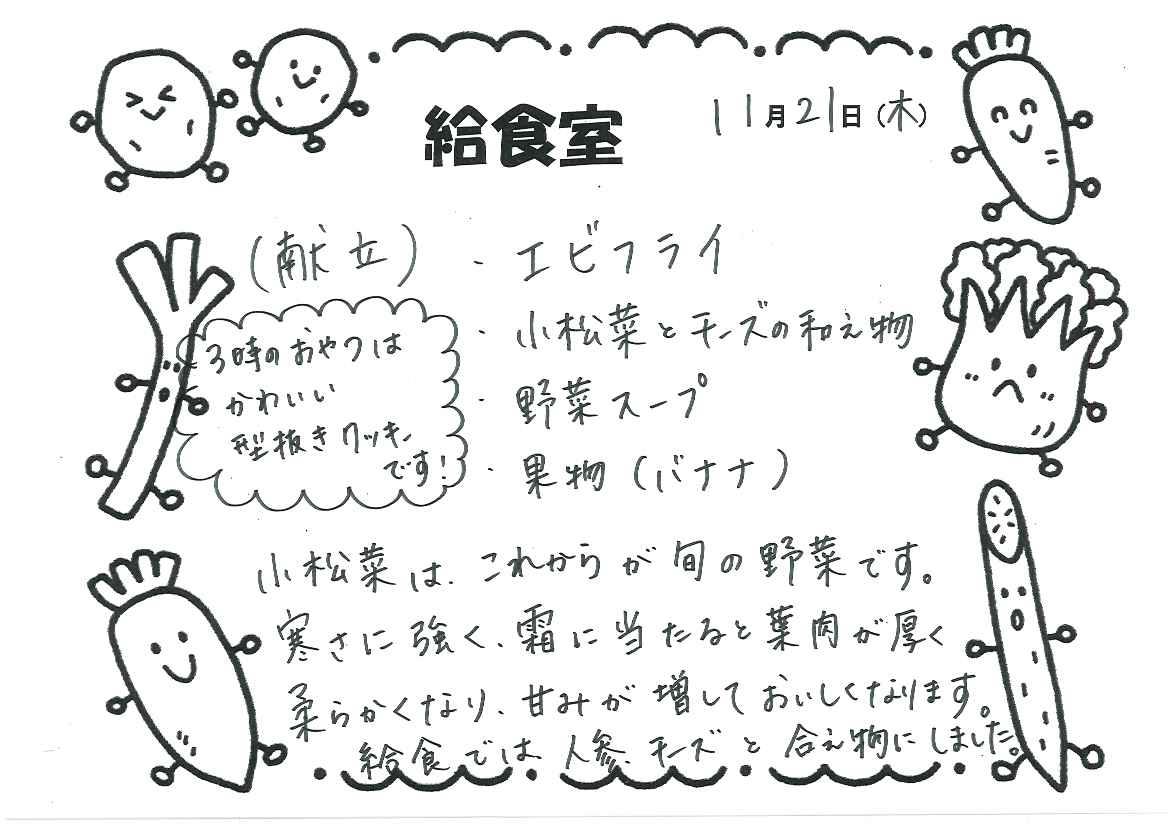 給食室
11月21日(木)
(献立)
・エビフライ
・小松菜とチーズの和え物
・野菜スープ
・果物(バナナ)
3時のおやつは
かわいい
型抜きクッキー
です!
小松菜は、これからが旬の野菜です。
寒さに強く、霜に当たると葉肉が厚く
柔らかくなり、甘みが増しておいしくなります。
給食では人参、チーズと合え物にしました。